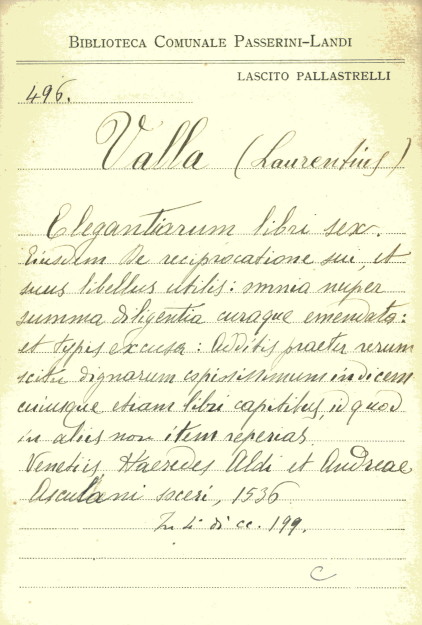 BIBLIOTECA COMUNALE PASSERINI-LANDI
LASCITO PALLASTRELLI
496.
Valla (Laurentius)
Elegantiarum libri sex.
Eiusdem De reciprocatione sui, et
suus libellus utilis: omnia nuper
summa diligentia curaque emendata:
et typis excusa: additis praeter rerum
scitu dignarum copiosissimum indicem
cuiusque etiam libri capitibus, id quod
in aliis non item reperias.
Venetiis Haeredes Aldi et Andreae
Asculani soceri, 1536
di cc. 199.
C